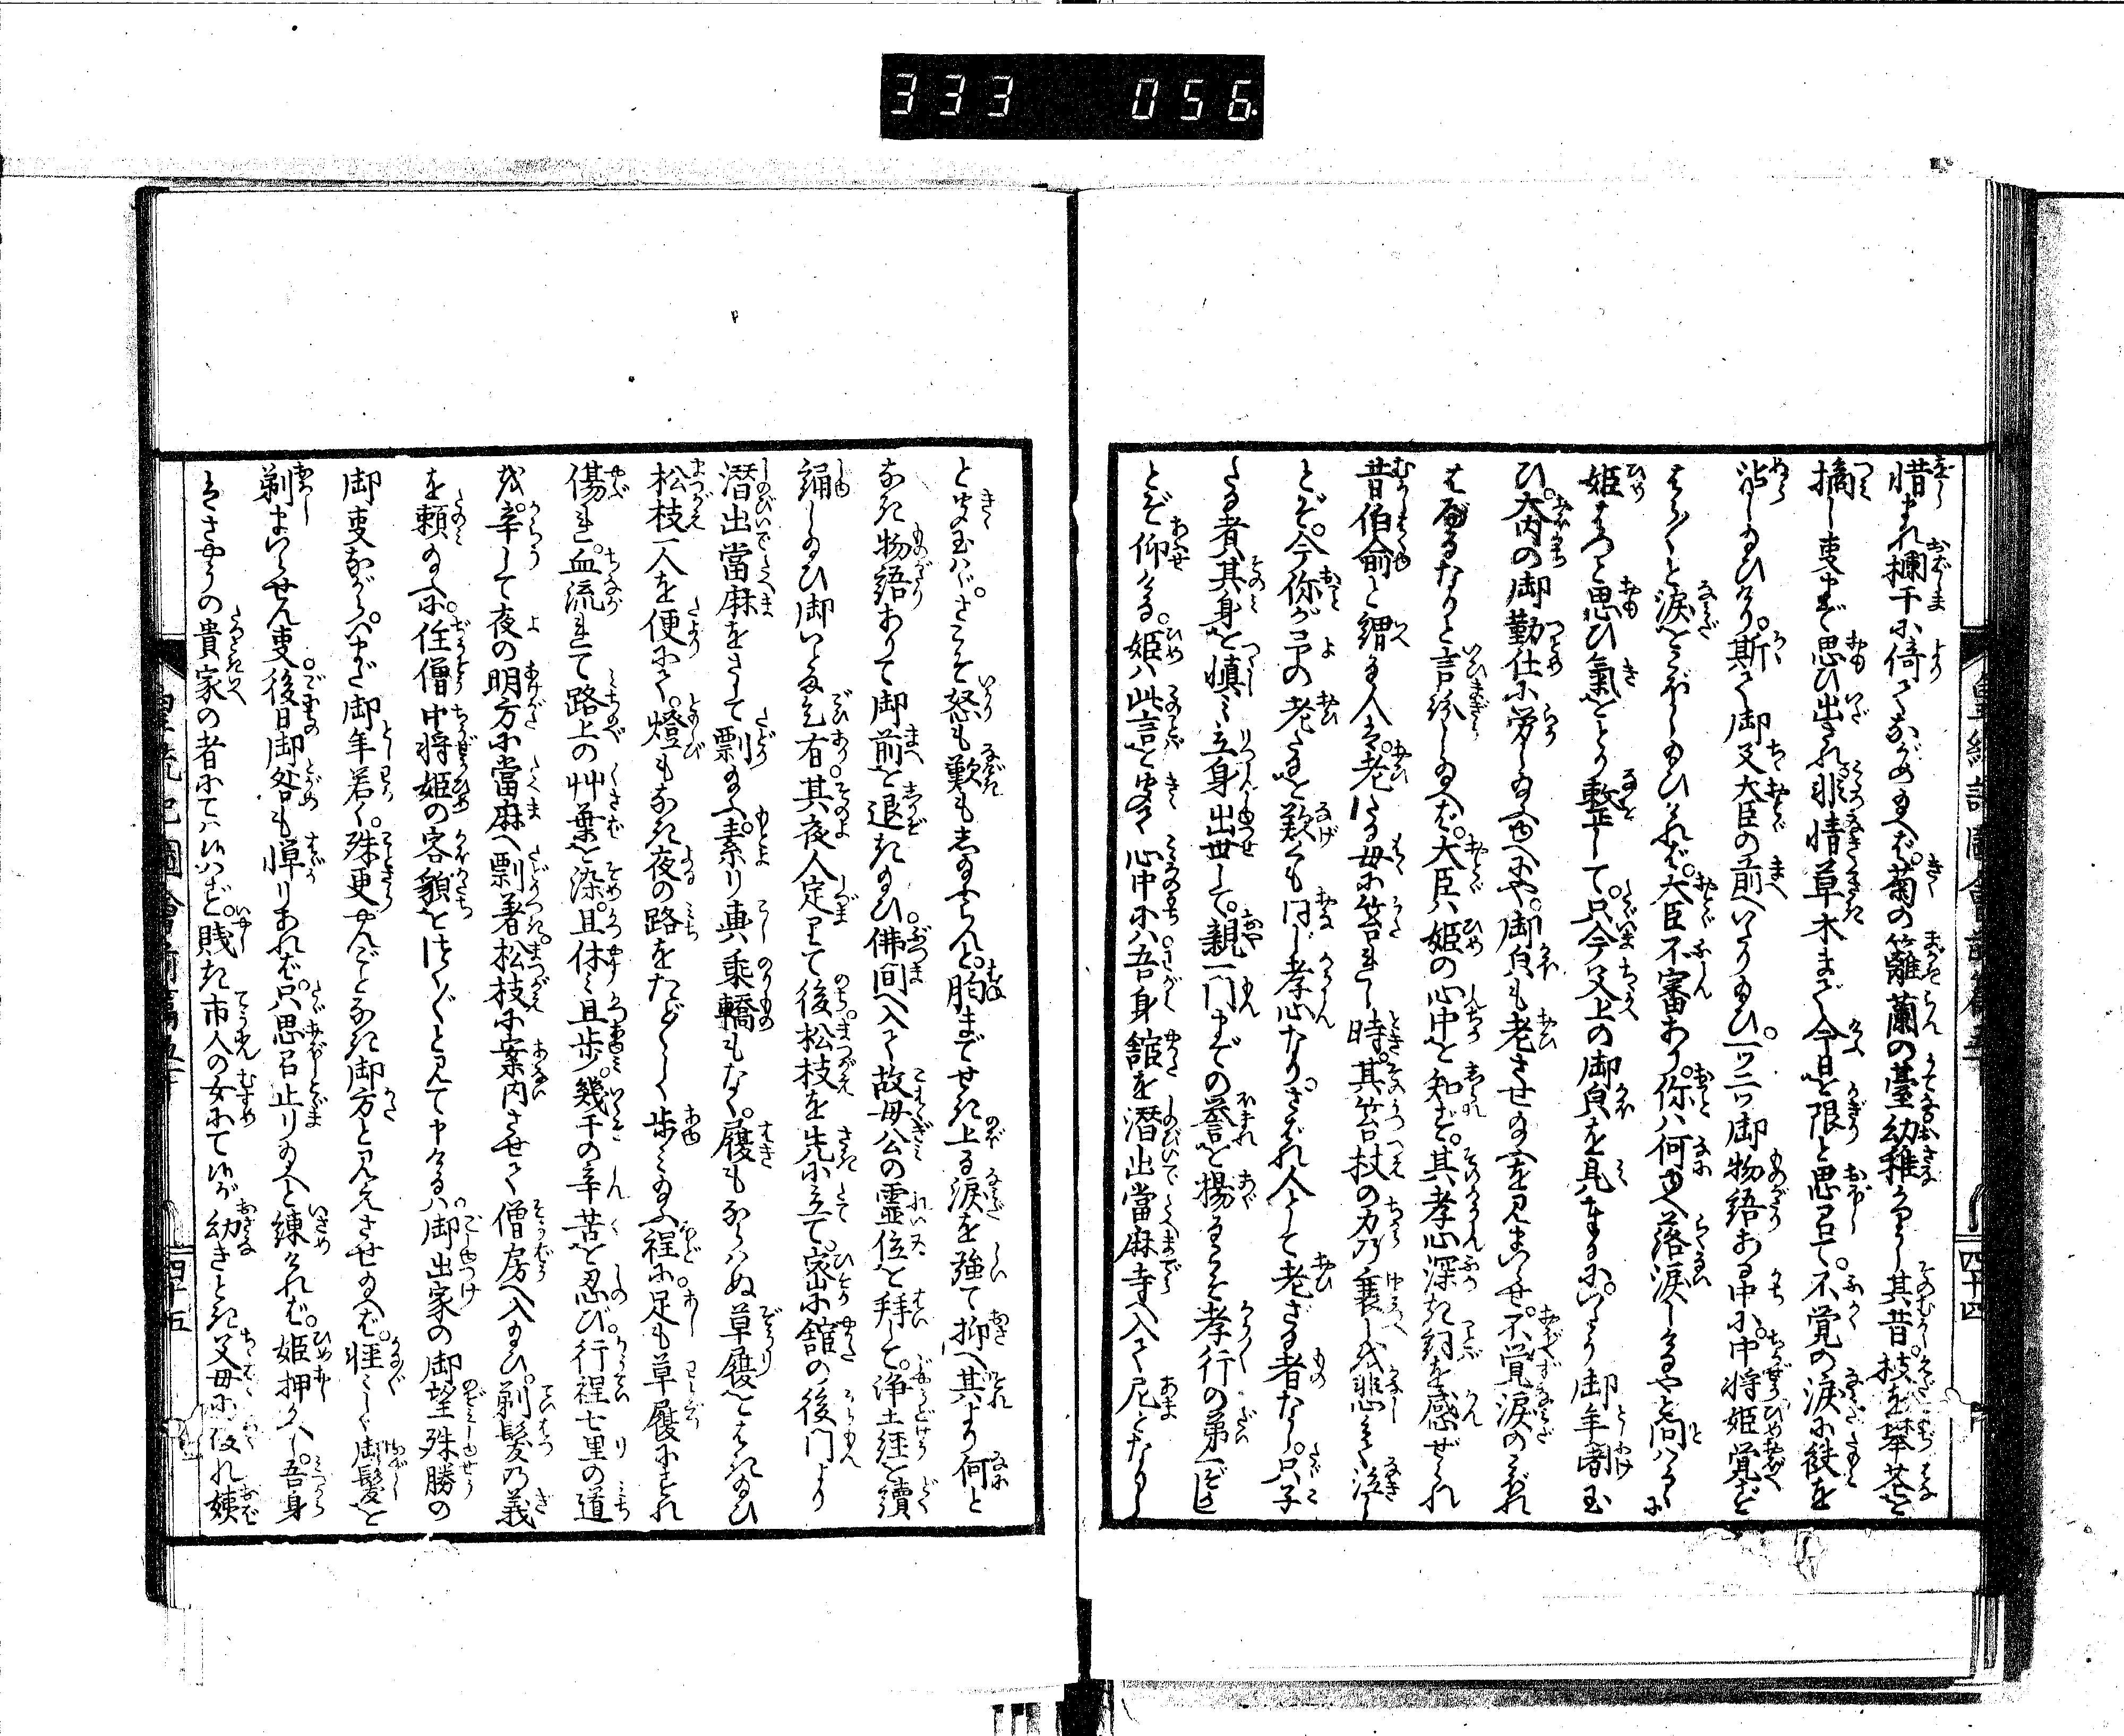 333 056
惜まれ欄干に倚てながめ給へば。菊の籬蘭の臺幼稚かりし其昔。枝を搴花を
摘し事まで思ひ出され非情草木まで今日を限と思召て。不覚の涙に袂を
沾し給ひけり。斯て御父大臣の前へいたり給ひ。一ツ二ツ御物語ある中に。中将姫覚ず
はら〳〵と涙をこぼし給ひければ。大臣不審あり。你ハ何ゆへ落涙しけるやと問ハるゝに
姫はつと思ひ氣をとり整して。只今父上の御皃を見まゐるに。いたう御年闌玉
ひ。大内の御勤仕に労し給ふゆへにや。御皃も老させ給ふを見まいらせ。不覚涙のこぼれ
はべるなりと言紛し給へば。大臣ハ姫の心中を知ず。其孝心深き詞を感ぜられ
昔伯兪と謂る人は。老たる母に笞れし時。其笞杖の力乃衰しを悲しみて泣し
とぞ。今你が予の老たるを歎くも同じ孝心なり。されば人として老ざる者なし。只子
たる者其身を慎み立身出世して。親一門までの誉を揚るこそ孝行の第一ぞ
とぞ仰ける。姫ハ此言を聞て心中に八吾身舘を潜出當麻寺へ入て尼となりし
四十四
と聞玉ハゞ。さこそ怒も歎も志給ふらんと。胸までせき上る涙を強て抑へ其より何と
なき物語ありて御前を退き給ひ。佛間へ入て故母公の霊位を拝して。浄土経を読
誦し給ひ御いとま乞有。其夜人定りて後松枝を先に立て。密に舘の後門より
潜出當麻をさして剽給ふ。素より輿乗轎もなく。履もならハぬ草履をはき給ひ
松枝一人を便にて。燈もなき夜の路をたどる〳〵歩み給ふ程に。足も草履にすれ
傷れ。血流れて路上の艸葉を染。且休み且歩。幾千の辛苦を忍び。行程七里の道
を。辛して夜の明方に當麻へ剽着松枝に案内させて僧房へ入給ひ。剃髪乃義
を頼給ふに。住僧中将姫の容貌をつく〴〵と見て申けるハ。御出家の御望殊勝の
御事ながら。いまだ御年若く。殊更やんごとなき御方と見えさせ給へば。軽々しく御髪を
剃まいらせん事後日御咎も憚りあれば。只思召止り給へと練ければ。姫押かへし。吾身
はさやうの貴家の者にてハ候ハず。賎き市人の女にて候が幼きとき父母に後れ姨
四十五